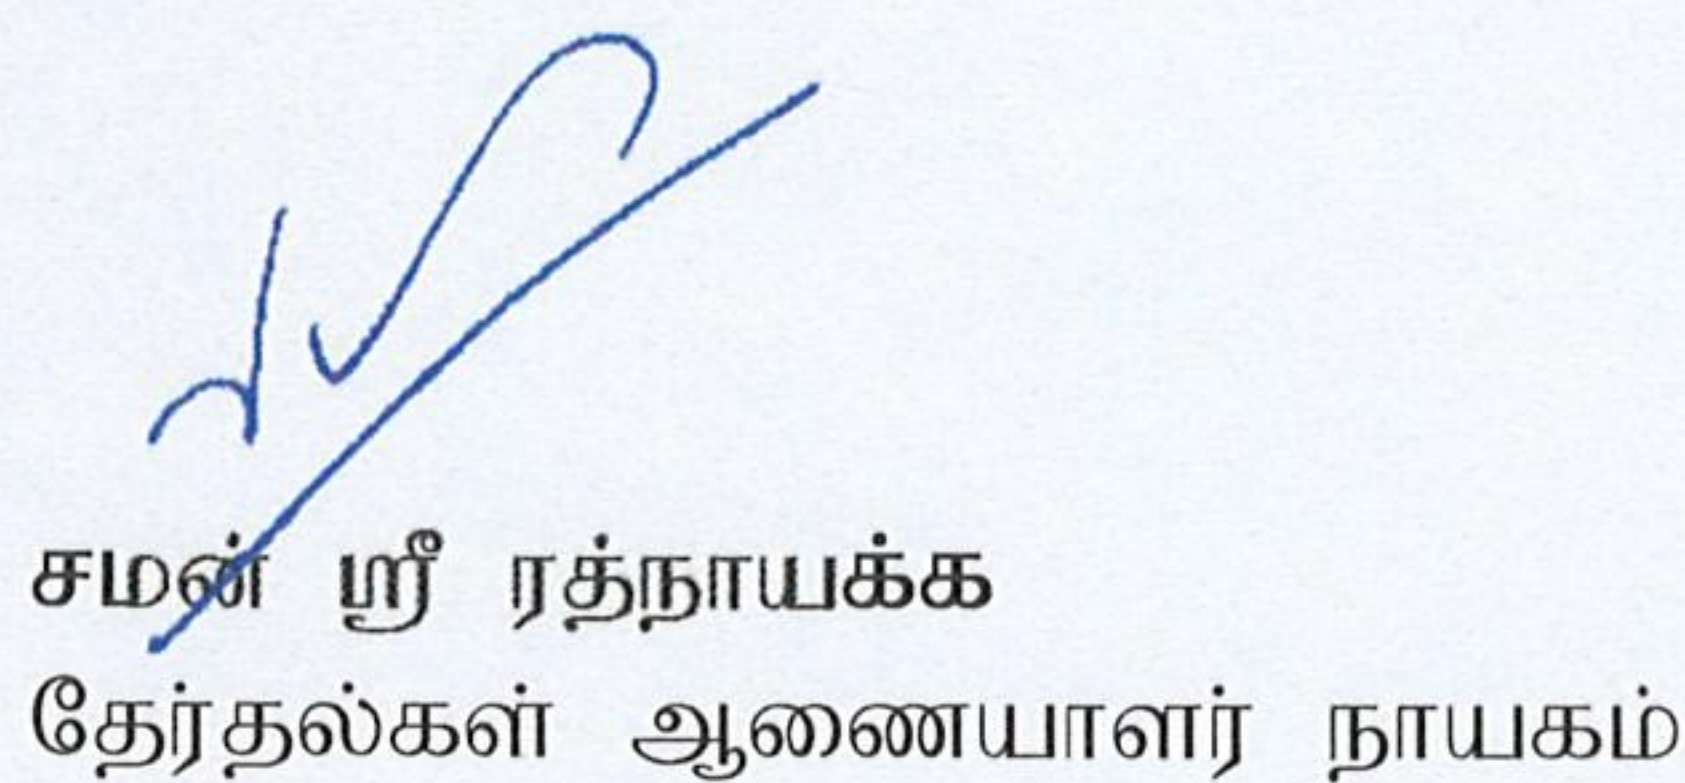 சமன் ஸ்ரீ ரத்நாயக்க
தேர்தல்கள் ஆணையாளர் நாயகம்